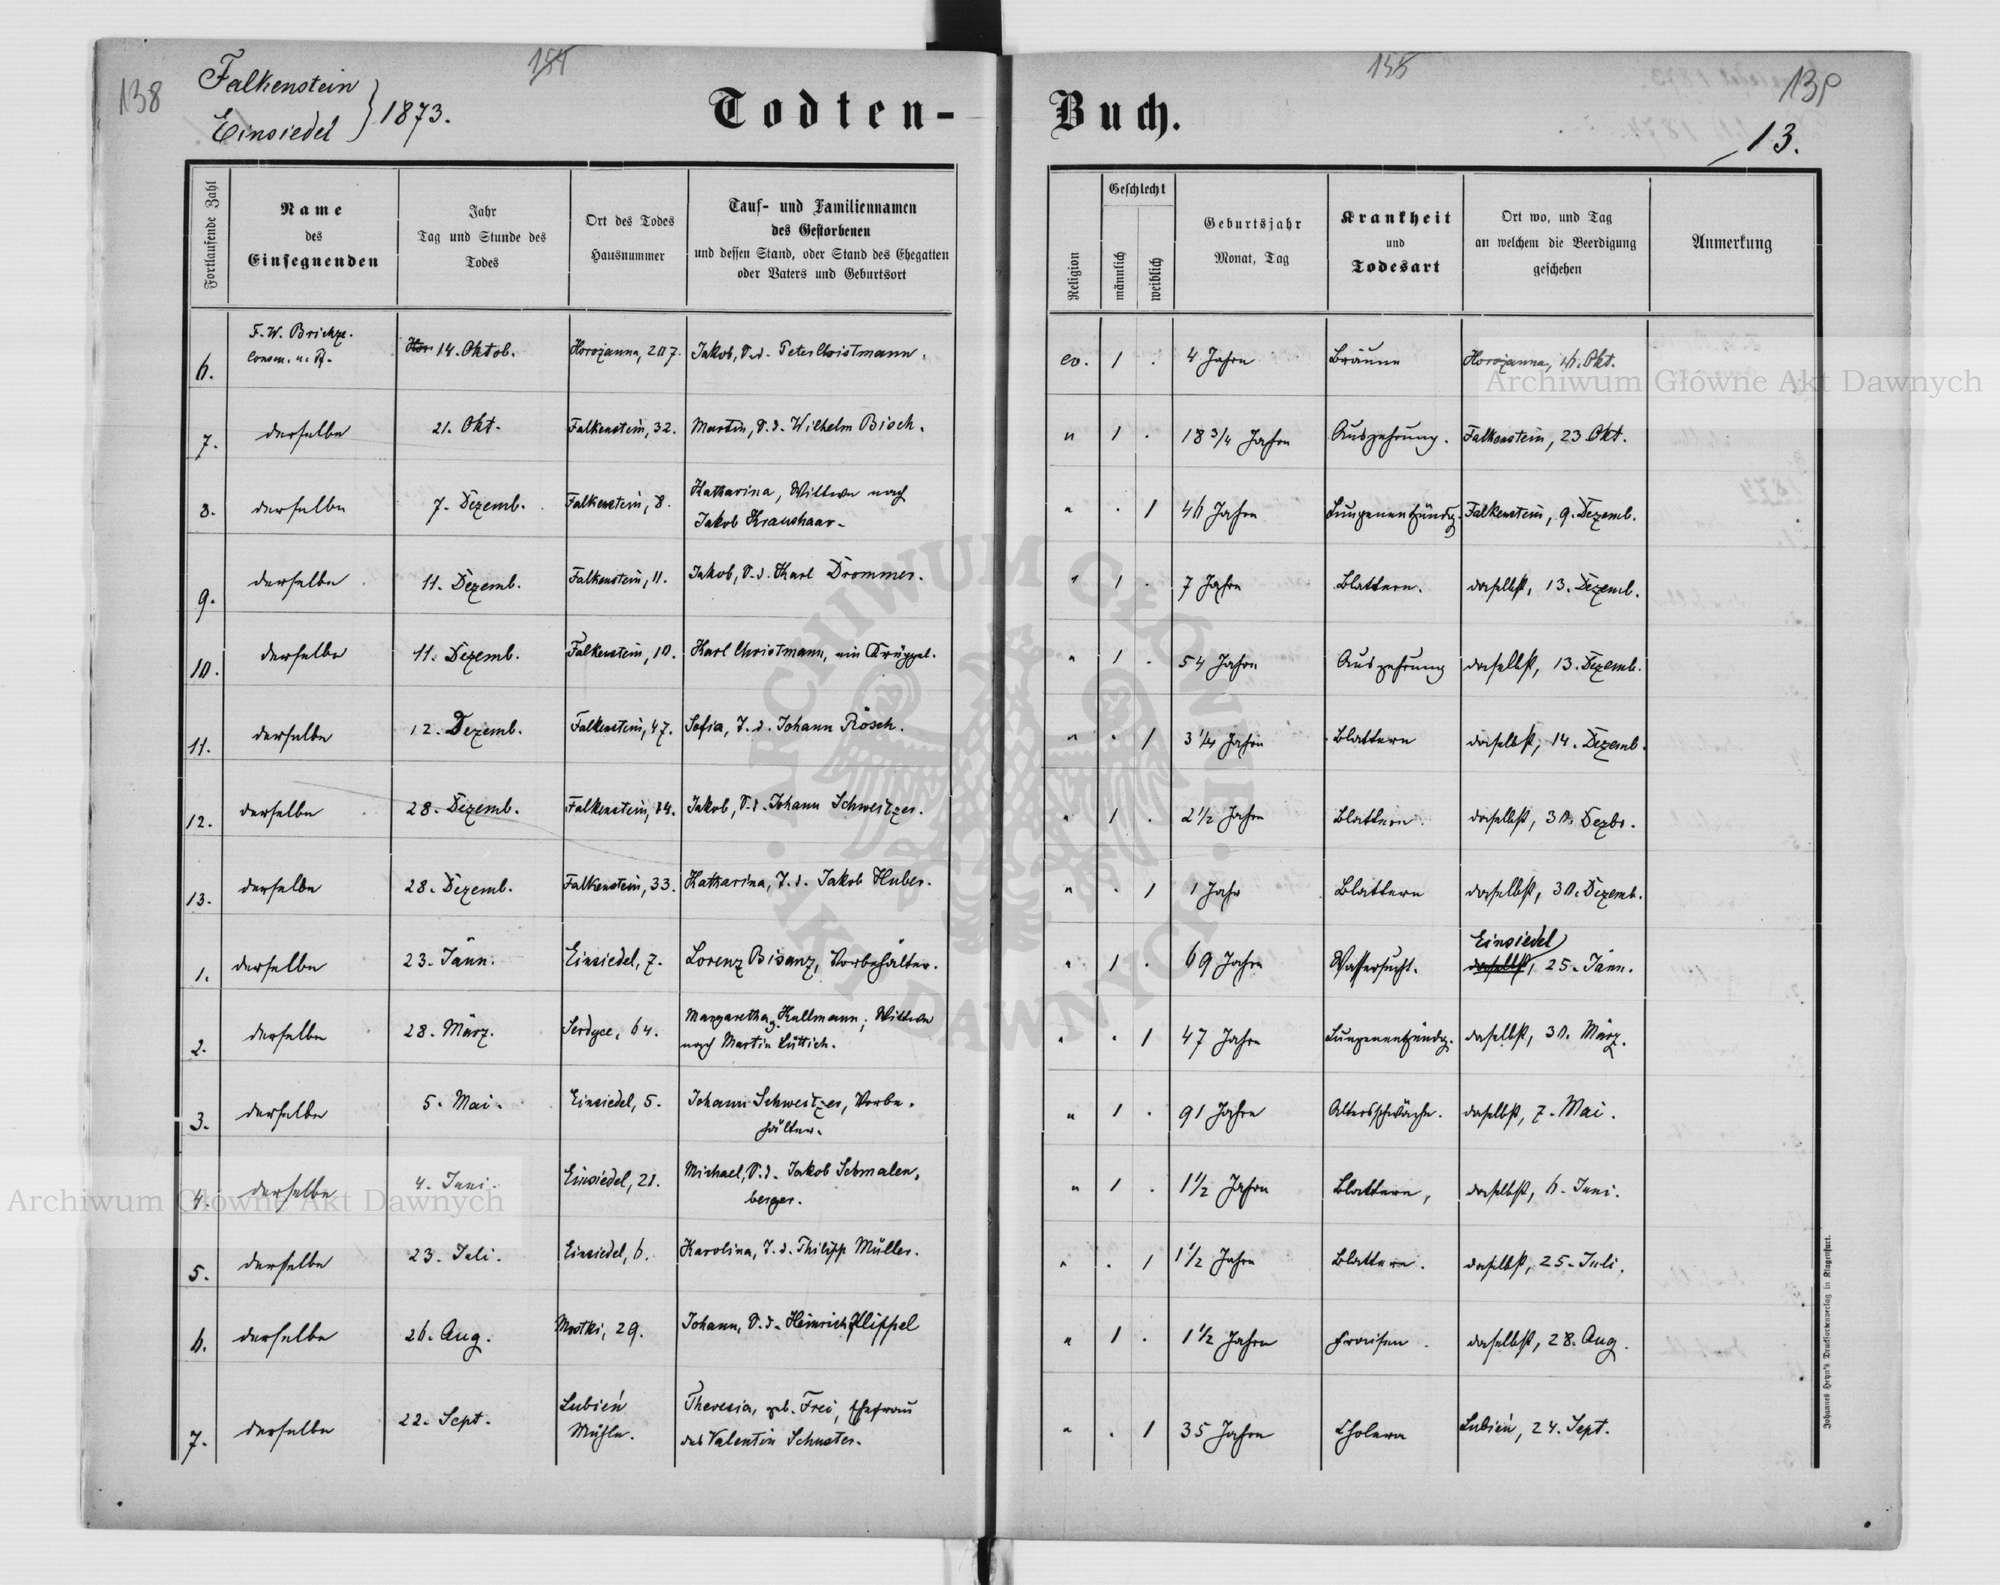 138
Falkenstein
Einsiedel } 1873.
Todten-
Buch.
13.
Fortlaufende Zahl
Name des Einsegnenden
Jahr Tag und Stunde des Todes
Ort des Todes Hausnummer
Tauf- und Familiennamen des Gestorbenen und dessen Stand, oder Stand des Ehegatten oder Vaters und Geburtsort
Religion
Geschlecht
männlich
weiblich
Geburtsjahr Monat, Tag
Krankheit und Todesart
Ort wo, und Tag an welchem die Beerdigung geschehen
Anmerkung
6. F. W. Brickze. 14. Oktob. Horożanna, 207. Jakob, S. d. Peter Christmann. ev. 1 . 4 Jahre Bräune Horożanna, 16. Okt.
7. derselbe 21. Okt. Falkenstein, 32. Martin, S. d. Wilhelm Bisch. " 1 . 18 3/4 Jahre Auszehrung. Falkenstein, 23 Okt.
8. derselbe 7. Dezemb. Falkenstein, 8. Katharina, Wittwe nach
Jakob Kraushaar. " . 1 46 Jahre Lungenentzündg. Falkenstein, 9. Dezemb.
9. derselbe 11. Dezemb. Falkenstein, 11. Jakob, S. d. Karl Drommer. " 1 . 7 Jahre Blattern. daselbst, 13. Dezemb.
10. derselbe 11. Dezemb. Falkenstein, 10. Karl Christmann, ein Krüppel. " 1 . 54 Jahre Auszehrung daselbst, 13. Dezemb.
11. derselbe 12. Dezemb. Falkenstein, 47. Sofia, T. d. Johann Rösch. " . 1 3 1/4 Jahre Blattern daselbst, 14. Dezemb.
12. derselbe 28. Dezemb. Falkenstein, 14. Jakob, S. d. Johann Schweitzer. " 1 . 2 1/2 Jahre Blattern. daselbst, 30. Dezbr.
13. derselbe 28. Dezemb. Falkenstein, 33. Katharina, T. d. Jakob Huber. " . 1 1 Jahr Blattern daselbst, 30. Dezemb.
1. derselbe 23. Jänn. Einsiedel, 7. Lorenz Bisanz, Vorbehälter. " 1 . 69 Jahre Wassersucht. Einsiedel
daselbst, 25. Jänn.
2. derselbe 28. März. Serdyce, 64. Margaretha g. Kullmann, Wittwe
nach Martin Lüttich. " . 1 47 Jahre Lungenentzündg. daselbst, 30. März.
3. derselbe 5. Mai. Einsiedel, 5. Johann Schweitzer, Vorbe-
hälter. " 1 . 91 Jahre Altersschwäche. daselbst, 7. Mai.
4. derselbe 4. Juni. Einsiedel, 21. Michael, S. d. Jakob Schmalen-
berger. " 1 . 1 1/2 Jahre Blattern, daselbst, 6. Juni.
5. derselbe 23. Juli. Einsiedel, 6. Karolina, T. d. Philipp Müller. " . 1 1 1/2 Jahre Blattern. daselbst, 25. Juli.
6. derselbe 26. Aug. Mostki, 29. Johann, S. d. Heinrich Hippel " 1 . 1 1/2 Jahre Fraisen. daselbst, 28. Aug.
7. derselbe 22. Sept. Lubień
Mühle. Theresia, geb. Frei, Ehefrau
des Valentin Schuster. " . 1 35 Jahre Cholera Lubień, 24. Sept.
Johannes Heyn's Drucksortenverlag in Klagenfurt.
Archiwum Główne Akt Dawnych
Archiwum Główne Akt Dawnych
ARCHIWUM GŁÓWNE · AKT DAWNYCH ·